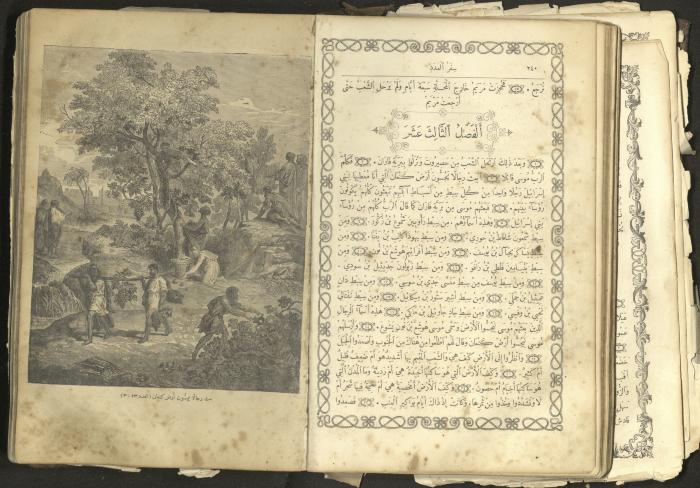 سفر العدد
٢٤٠
ترجع. فحجزت مريم خارج المحلة سبعة أيام ولم يرحل الشعب حتى
أرجعت مريم
ألفصل الثالث عشر
وبعد ذلك ارتحل الشعب من حصيروت ونزلوا ببرية فاران. فكلم
الرب موسى قائلا ابعث رجالا يجسون أرض كنعان التي أنا معطيها لبني
إسرائيل رجلا واحدا من كل سبط من أسباط آبائهم تبعثون كلهم يكونون
رؤساء بينهم. فبعثهم موسى من برية فاران كما قال الرب كلهم من رؤساء
بني إسرائيل وهذه أسماؤهم. من سبط رأوبين شموع بن زكور. ومن
سبط شمعون شافاط بن حوري. ومن سبط يهوذا كالب بن يفنا. ومن
سبط يساكر يجآل بن يوسف. ومن سبط أفرائيم هوشع بن نون. ومن
سبط بنيامين فلطي بن رافو. ومن سبط زبولون جديئيل بن سودي.
ومن سبط يوسف من سبط منسى جدي بن سوسي. ومن سبط دان
عميئيل بن جملي. ومن سبط أشير ستور بن ميكائيل. ومن سبط نفتالي
نحبي بن وفسي. ومن سبط جاد جاوئيل بن ماكي. هذه أسماء الرجال
الذين بعثهم موسى ليجسوا الأرض وسمى موسى هوشع بن نون يشوع. وأرسلهم
موسى ليجسوا أرض كنعان وقال لهم اطلعوا من هناك من الجنوب واصعدوا الجبل
وانظروا إلى الأرض كيف هي والشعب المقيم بها أشديد هو أم ضعيف قليل
أم كثير. وكيف الأرض التي هو ساكنها أجيدة هي أم رديئة وما المدن التي
هو ساكنها أخيام أم حصون. وكيف الأرض أمخصبة هي أم عقيمة فيها شجر أم
لا وتشددوا وخذوا من ثمرها. وكانت إذ ذاك أيام بواكير العنب. فصعدوا
بعث رجالا يجسون أرض كنعان (العدد ١٣: ٣)